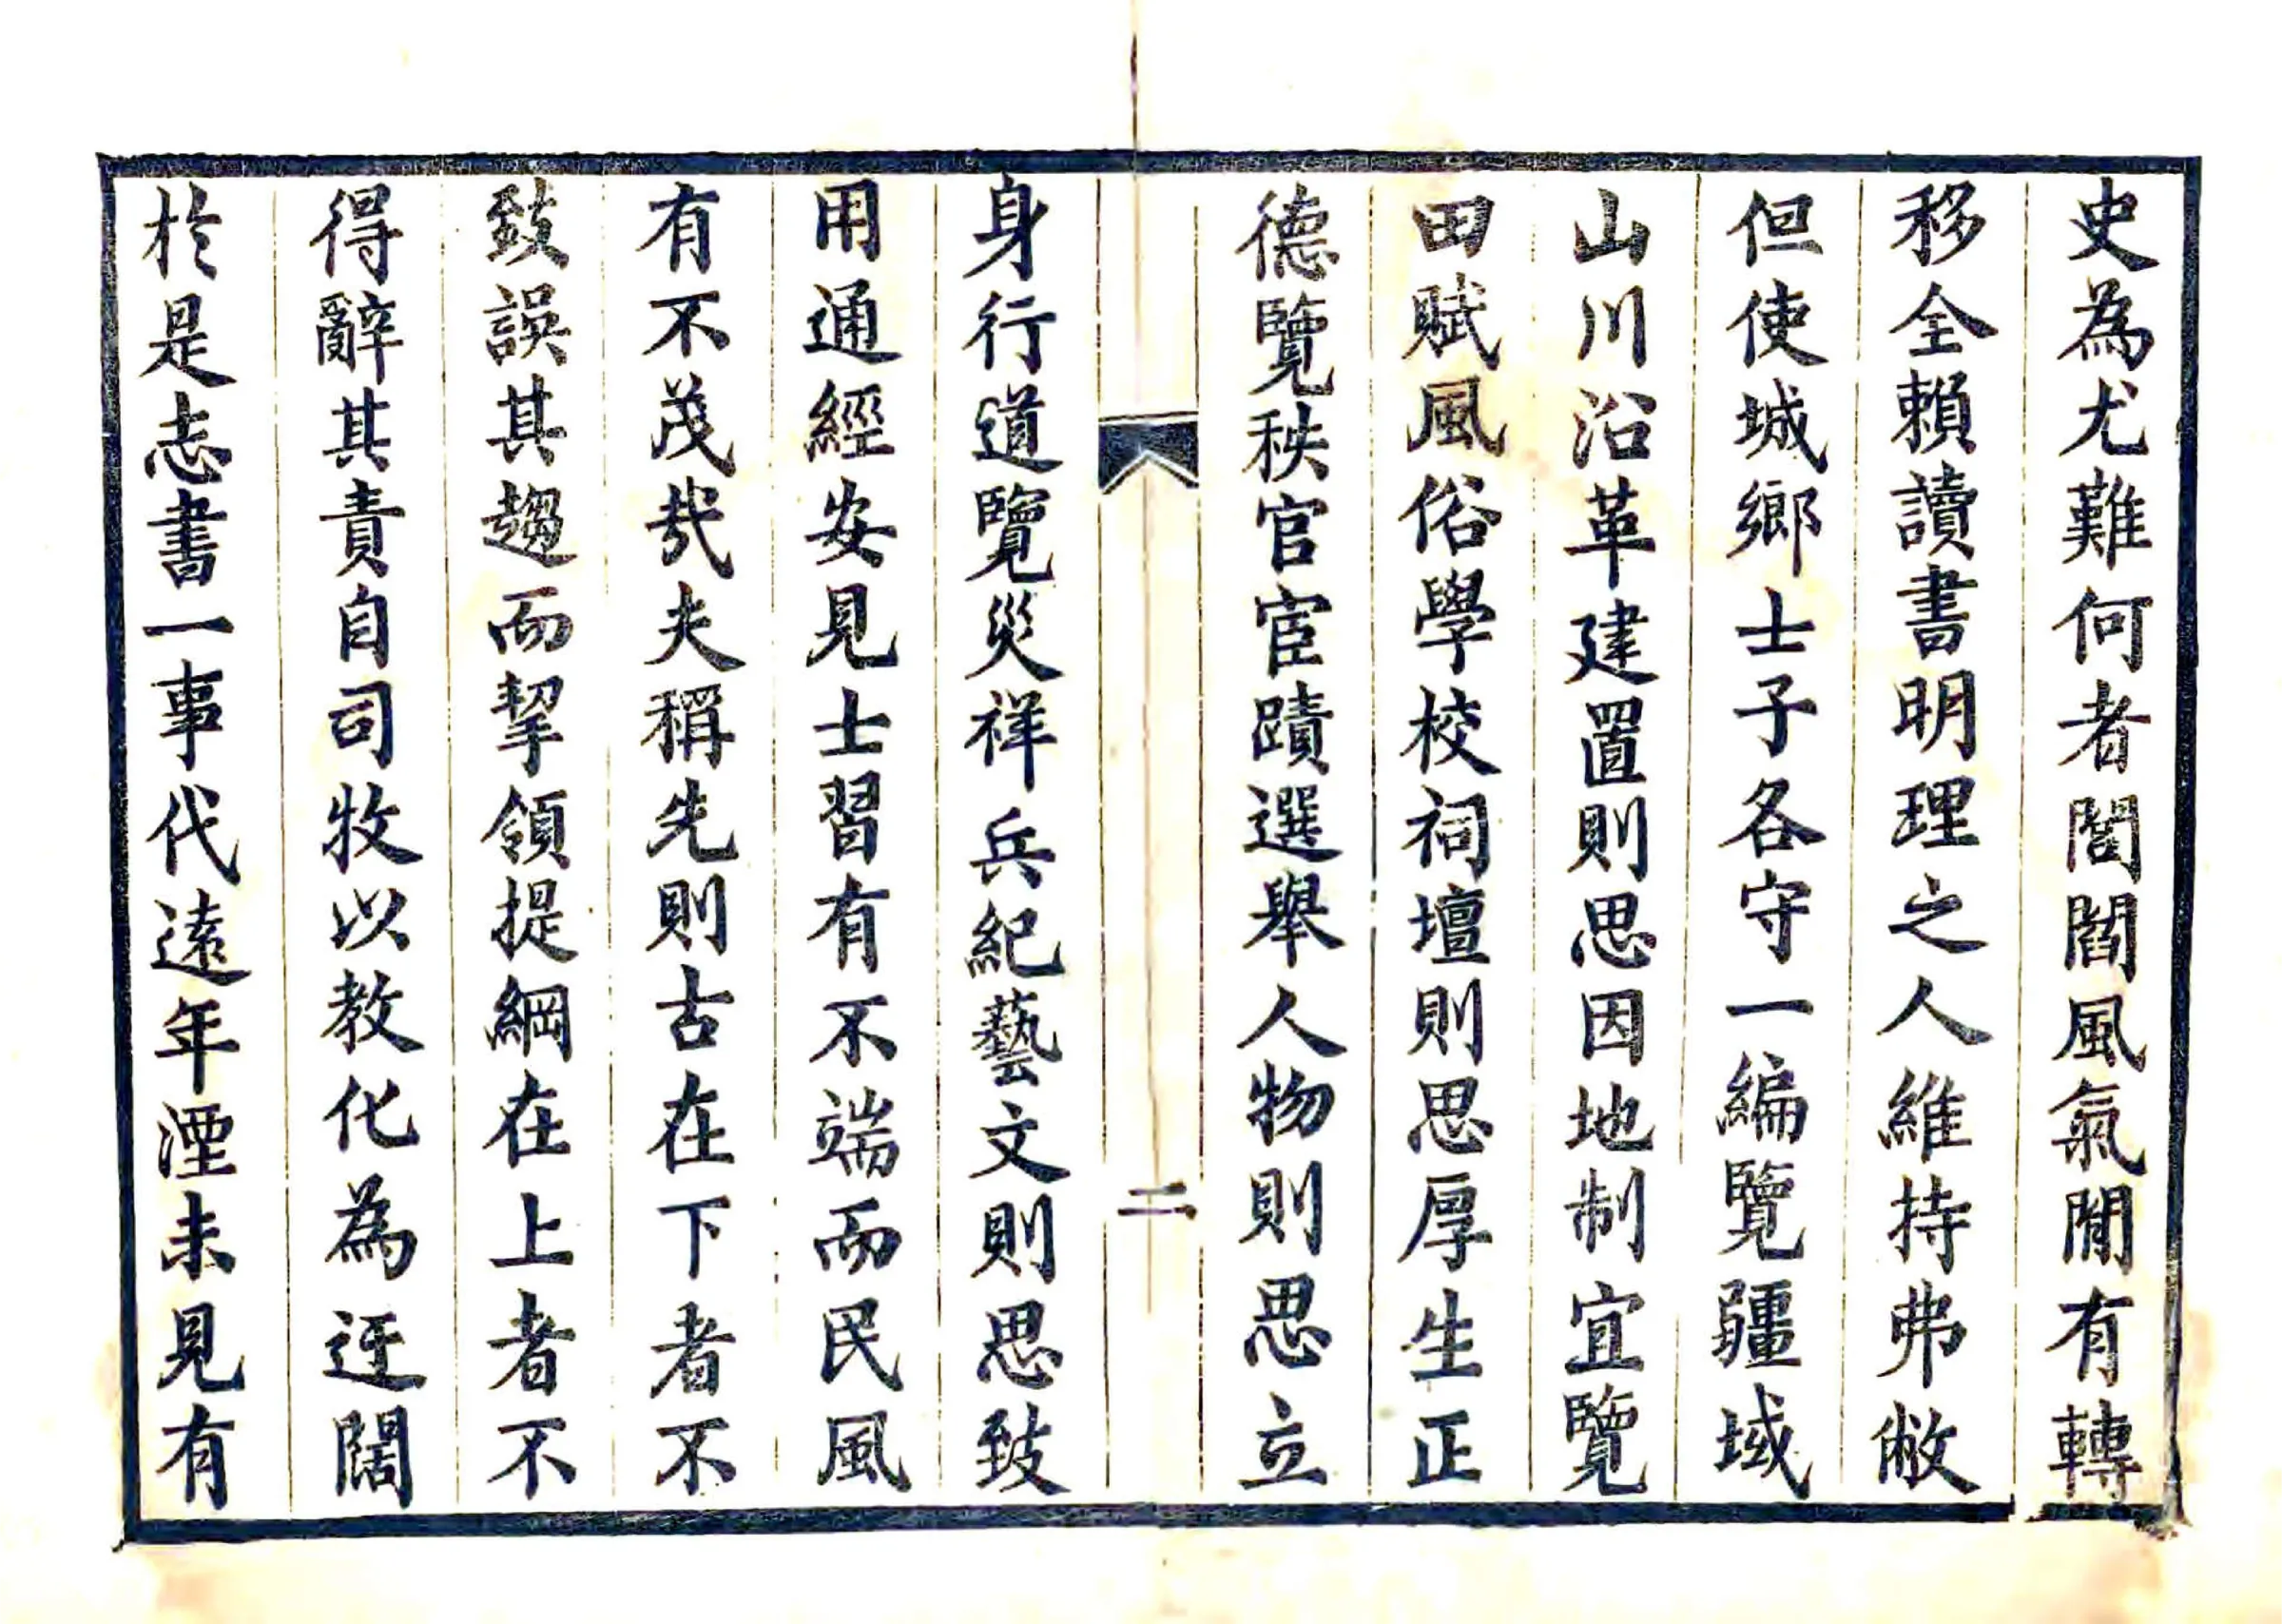 史為尤難何者閭閻風氣閒有轉
移全賴讀書明理之人維持弗敝
但使城鄉士子各守一編覽疆域
山川沿革建置則思因地制宜覽
田賦風俗學校祠壇則思厚生正
德覽秩官宦蹟選舉人物則思立
二
身行道覽災祥兵紀藝文則思致
用通經安見士習有不端而民風
有不茂哉夫稱先則古在下者不
致誤其趨而挈領提綱在上者不
得辭其責自司牧以教化為迂闊
於是志書一事代遠年湮未見有